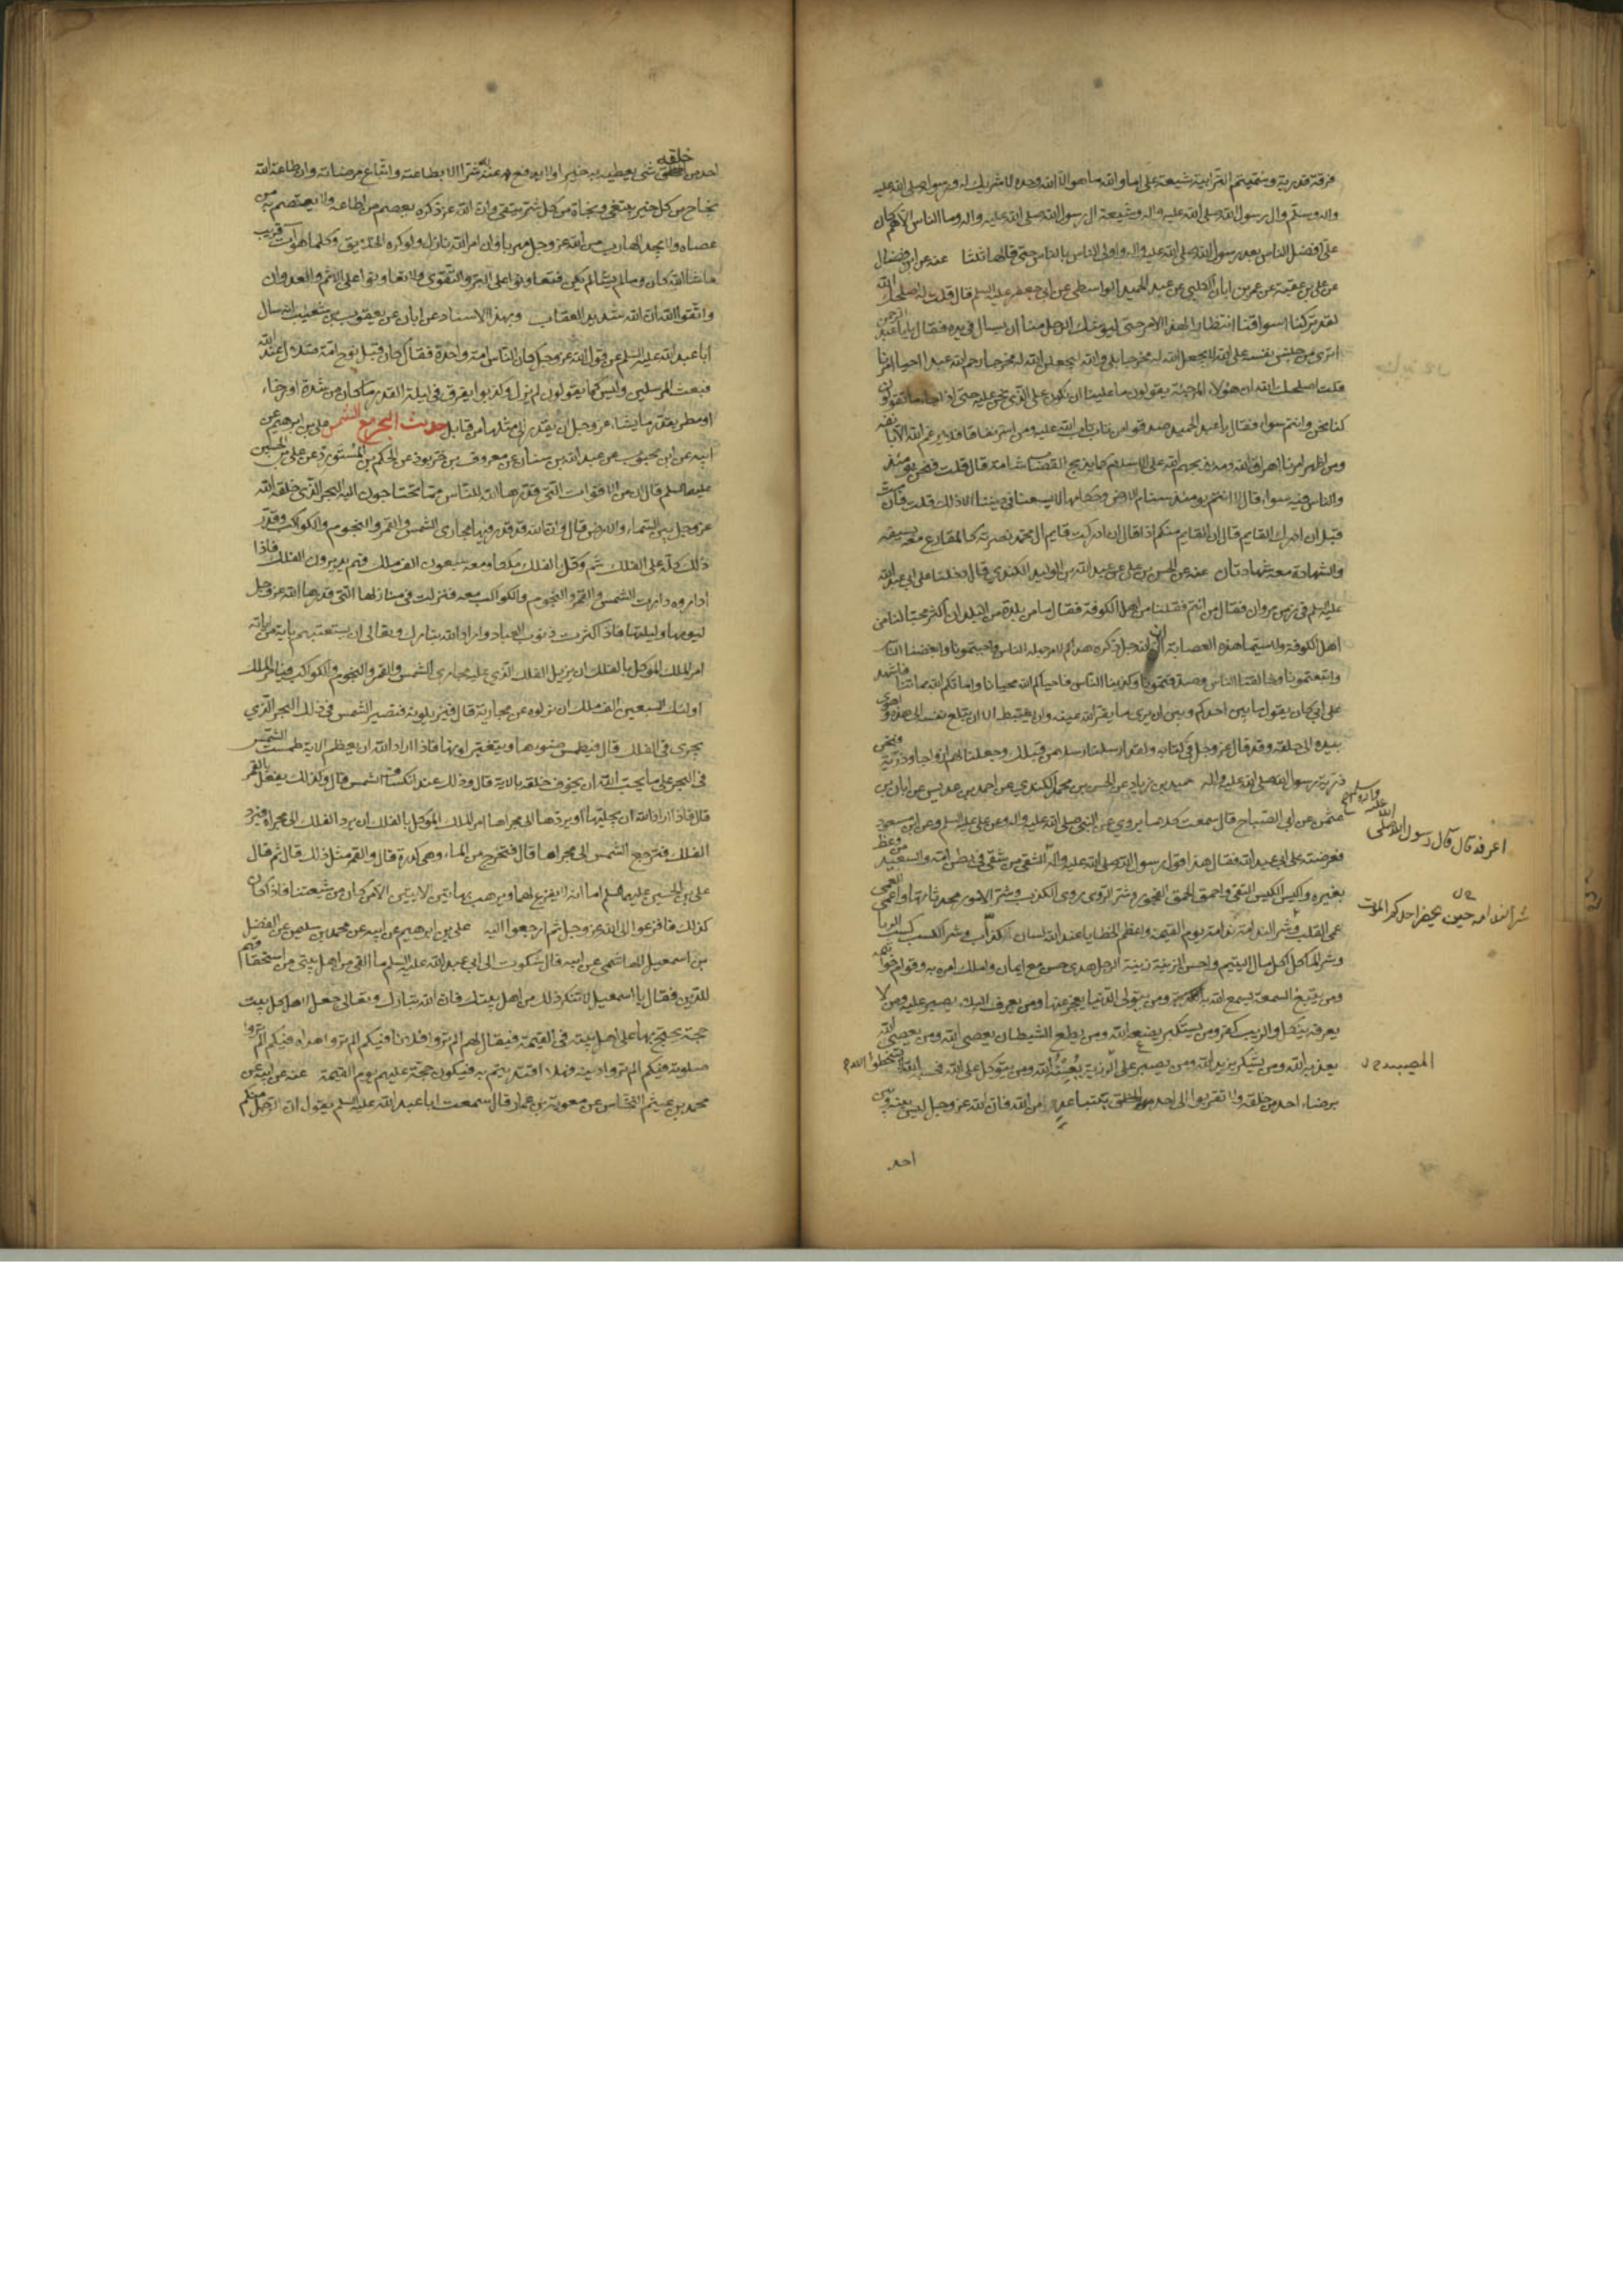 فرقة قدرية وسميتهم الترابية شيعة علي اما والله ما هو الا الله وحده لا شريك له ورسوله صلى الله عليه
واله وسلم وال رسول الله صلى الله عليه واله وشيعة ال رسول الله صلى الله عليه واله وما الناس الا هم كان
علي افضل الناس بعد رسول الله صلى الله عليه واله واولى الناس بالناس حتى قالها ثلثا عنه عن ابن فضال
عن علي بن عقبة عن عمر بن ابان الكلبي عن عبد الحميد الواسطي عن ابي جعفر عليه السلم قال قلت له اصلحك الله
لقد تركنا اسواقنا انتظارا لهذا الامر حتى ليوشك الرجل منا ان يسال في يده فقال يا با عبد الرحمن
اترى من حبس نفسه على الله لا يجعل الله له مخرجا بلى والله ليجعلن الله له مخرجا رحم الله عبدا احيا امرنا
قلت اصلحك الله ان هؤلاء المرجئة يقولون ما علينا ان نكون على الذي نحن عليه حتى اذا جاء ما تقولون
كنا نحن وانتم سواء فقال يا عبد الحميد صدقوا من تاب تاب الله عليه ومن اسر نفاقا فلا يرغم الله الا بانفه
ومن اظهر امرنا اهراق الله دمه يذبحهم الله على الاسلام كما يذبح القصاب شاته قال قلت فنحن يومئذ
والناس فيه سواء قال لا انتم يومئذ سنام الارض وحكامها لا يسعنا في ديننا الا ذلك قلت فان مت
قبل ان ادرك القايم قال ان القايل منكم اذا قال ان ادركت قايم ال محمد نصرته كالمقارع معه بسيفه
والشهادة معه شهادتان عنه عن الحسن بن علي عن عبد الله بن الوليد الكندي قال دخلنا على ابي عبد الله
عليه السلم في زمن مروان فقال من انتم فقلنا من اهل الكوفة فقال ما من بلدة من البلدان اكثر محبا لنا من
اهل الكوفة ولا سيما هذه العصابة ان الله جل ذكره هداكم لامر جهله الناس واحببتمونا وابغضنا الناس
واتبعتمونا وخالفنا الناس وصدقتمونا وكذبنا الناس فاحياكم الله محيانا واماتكم الله مماتنا فاشهد
على ابي كان يقول ما بين احدكم وبين ان يرى ما يقر الله عينه وان يغتبط الا ان تبلغ نفسه الى هذه واهوى
بيده الى حلقه وقد قال عز وجل في كتابه ولقد ارسلنا رسلا من قبلك وجعلنا لهم ازواجا وذرية فنحن
ذرية رسول الله صلى الله عليه واله حميد بن زياد عن الحسن بن محمد الكندي عن احمد بن عديس عن ابان بن
عثمن عن ابي الصباح قال سمعت كلاما يروي عن النبي صلى الله عليه واله وعن علي عليه السلم وعن ابن مسعود
فعرضته على ابي عبد الله فقال هذا قول رسول الله صلى الله عليه واله الشقي من شقي في بطن امه والسعيد من وعظ
اعرفه قال قال رسول الله صلى الله عليه واله وسلم
بغيره واكيس الكيس التقى واحمق الحمق الفجور وشر الروي روي الكذب وشر الامور محدثاتها واعمى العمى
عمى القلب وشر الندامة ندامة يوم القيمة واعظم الخطايا عند الله لسان الكذاب وشر الكسب كسب الربا
شر الندامة حين يحضر احدكم الموت
وشر الماكل اكل مال اليتيم واحسن الزينة زينة الرجل هدى حسن مع ايمان واملك امره به وقوام خواتمه
ومن يتبع السمعة يسمع الله به ومن يتولى الدنيا يعجز عنها ومن يعرف البلاء يصبر عليه ومن لا
يعرفه ينكل والريب كفر ومن يستكبر يضعه الله ومن يطع الشيطان يعصى الله ومن يعصى الله
يعذبه الله ومن يشكر يزيده الله ومن يصبر على الرزية يعينه الله ومن يتوكل على الله فحسبه الله لا تسخطوا الله
المصيبة
برضاء احد من خلقه ولا تقربوا الى احد من الخلق بتباعد من الله فان الله عز وجل ليس بينه وبين
احد
احد من خلقه شيء يعطيه به خيرا ولا يدفع به عنه شرا الا بطاعته واتباع مرضاته وان طاعة الله
نجاح من كل خير يبتغى ونجاة من كل شر يتقى وان الله عز ذكره يعصم من اطاعه ولا يعتصم به من
عصاه ولا يجد الهارب من الله عز وجل مهربا وان امر الله نازل ولو كره الخلايق وكلما هو ات قريب
ما شاء الله كان وما لم يشا لم يكن فتعاونوا على البر والتقوى ولا تعاونوا على الاثم والعدوان
واتقوا الله ان الله شديد العقاب وبهذا الاسناد عن ابان عن يعقوب بن شعيب انه سال
ابا عبد الله عليه السلم عن قول الله عز وجل كان الناس امة واحدة فقال كان قبل نوح امة ضلال فبدا لله
فبعث المرسلين وليس كما يقولون لم يزل وكذبوا يفرق في ليلة القدر ما كان من شدة او رخاء
او مطر بقدر ما يشاء عز وجل ان يقدر الى مثلها من قابل حديث البحر مع الشمس علي بن ابرهيم عن
ابيه عن ابن محبوب عن عبد الله بن سنان عن معروف بن خربوذ عن الحكم بن المستورد عن علي بن الحسين
عليهما السلم قال ان من الاقوات التي قدرها الله للناس مما يحتاجون اليه البحر الذي خلقه الله
عز وجل بين السماء والارض قال وان الله قد قدر فيها مجاري الشمس والقمر والنجوم والكواكب وقدر
ذلك كله على الفلك ثم وكل بالفلك ملكا ومعه سبعون الف ملك فهم يديرون الفلك فاذا
اداروه دارت الشمس والقمر والنجوم والكواكب معه فنزلت في منازلها التي قدرها الله عز وجل
ليومها وليلتها فاذا كثرت ذنوب العباد واراد الله تبارك وتعالى ان يستعتبهم باية من اياته
امر الملك الموكل بالفلك ان يزيل الفلك الذي عليه مجاري الشمس والقمر والنجوم والكواكب فيامر الملك
اولئك السبعين الف ملك ان يزيلوه عن مجاريه قال فيزيلونه فتصير الشمس في ذلك البحر الذي
يجري في الفلك قال فيطمس ضوءها ويتغير لونها فاذا اراد الله ان يعظم الاية طمست الشمس
في البحر على ما يحب الله ان يخوف خلقه بالاية قال وذلك عند انكساف الشمس قال وكذلك يفعل بالقمر
قال فاذا اراد الله ان يجليها او يردها الى مجراها امر الملك الموكل بالفلك ان يرد الفلك الى مجراه فيرد
الفلك فترجع الشمس الى مجراها قال فتخرج من الماء وهي كدرة قال والقمر مثل ذلك قال ثم قال
علي بن الحسين عليهما السلم اما انه لا يفزع لهما ويرهب بهاتين الايتين الا من كان من شيعتنا فاذا كان
كذلك فافزعوا الى الله عز وجل ثم ارجعوا اليه علي بن ابرهيم عن ابيه عن محمد بن سليمن عن الفضل
بن اسمعيل الهاشمي عن ابيه قال شكوت الى ابي عبد الله عليه السلم ما القى من اهل بيتي من استخفافهم
للدين فقال يا اسمعيل لا تنكر ذلك من اهل بيتك فان الله تبارك وتعالى جعل لاهل كل بيت
حجة يحتج بها على اهل بيته في القيمة فيقال لهم الم تروا فلانا فيكم الم تروا هداه فيكم الم تروا
صلوته فيكم الم تروا دينه فهلا اقتديتم به فيكون حجة عليهم يوم القيمة عنه عن ابيه عن
محمد بن عيثم النخاس عن معوية بن عمار قال سمعت ابا عبد الله عليه السلم يقول ان الرجل منكم